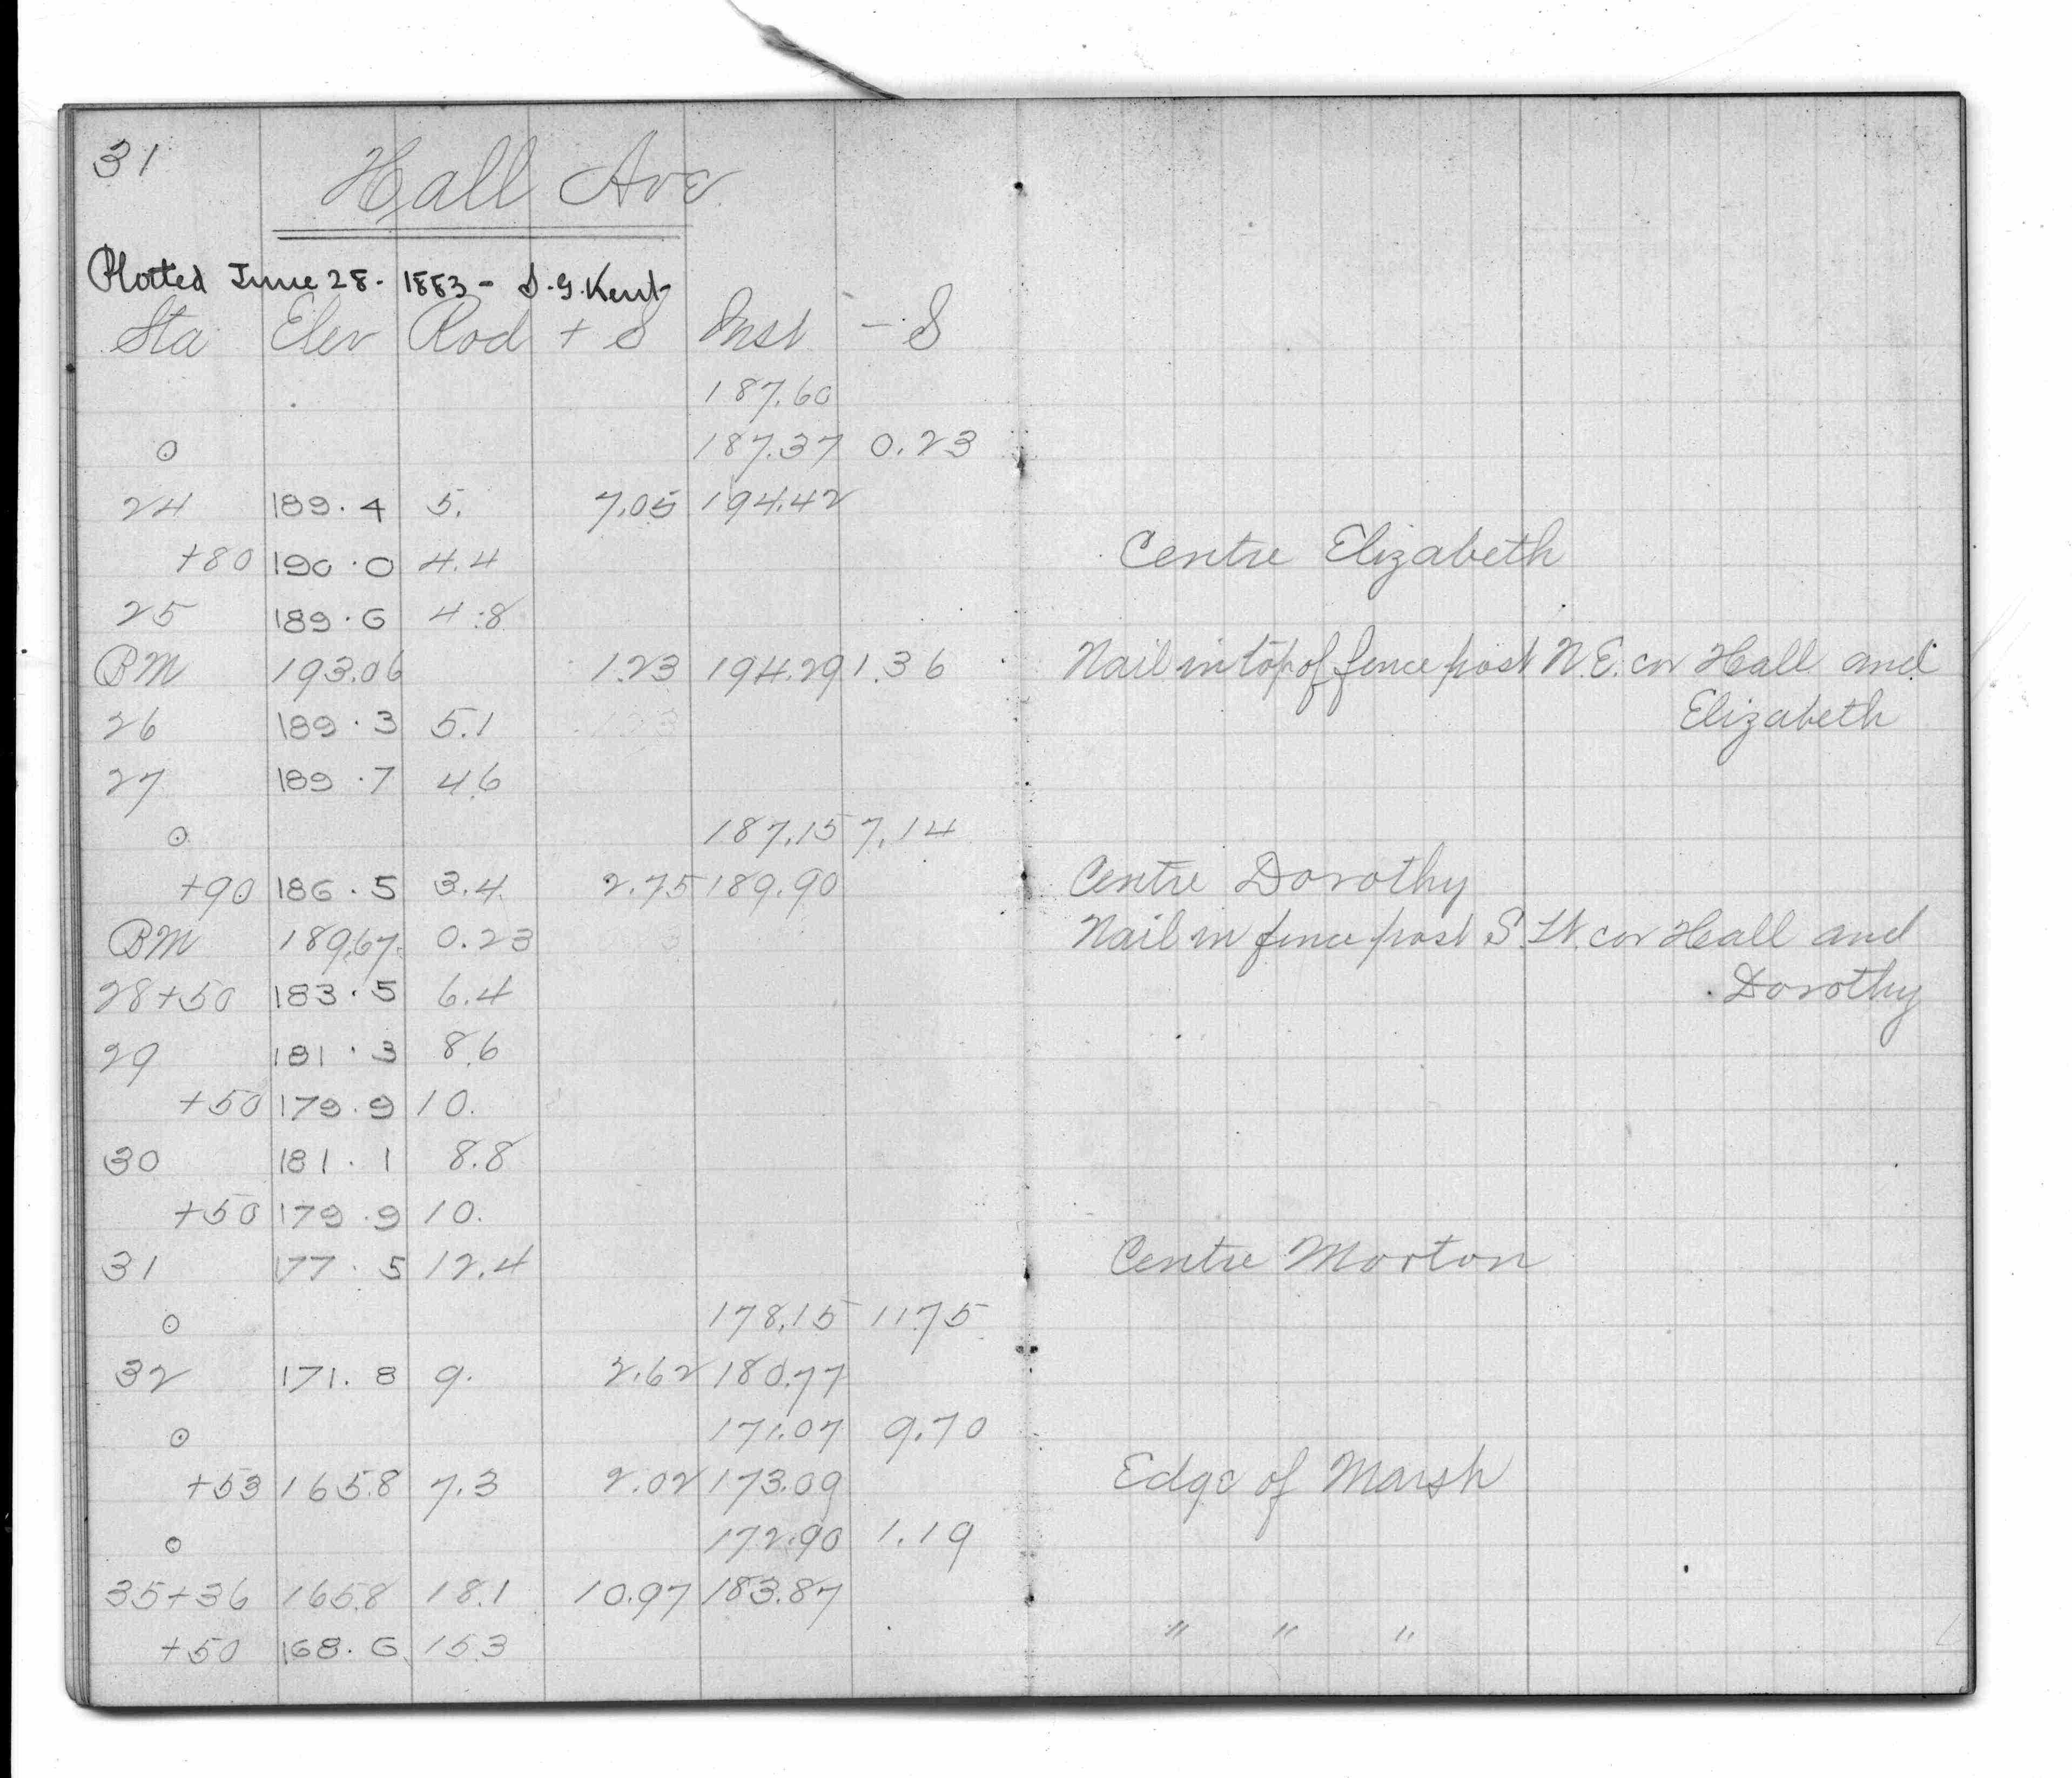 31
Hall Ave
Plotted June 28. 1883 - S. G. Kent
Sta Elev Rod + S Inst - S
187.60
⊙ 187.37 0.23
24 189.4 5. 7.05 194.42
+80 190.0 4.4 Centre Elizabeth
25 189.6 4.8
BM 193.06 1.23 194.29 1.36 Nail in top of fence post N.E. cor Hall and
26 189.3 5.1 Elizabeth
27 189.7 4.6
⊙ 187.15 7.14
+90 186.5 3.4 2.75 189.90 Centre Dorothy
BM 189.67 0.23 Nail in fence post S.W. cor Hall and
28+50 183.5 6.4 Dorothy
29 181.3 8.6
+50 179.9 10.
30 181.1 8.8
+50 179.9 10.
31 177.5 12.4 Centre Morton
⊙ 178.15 11.75
32 171.8 9. 2.62 180.77
⊙ 171.07 9.70
+53 165.8 7.3 2.02 173.09 Edge of Marsh
⊙ 172.90 1.19
35+36 165.8 18.1 10.97 183.87 " " "
+50 168.6 15.3